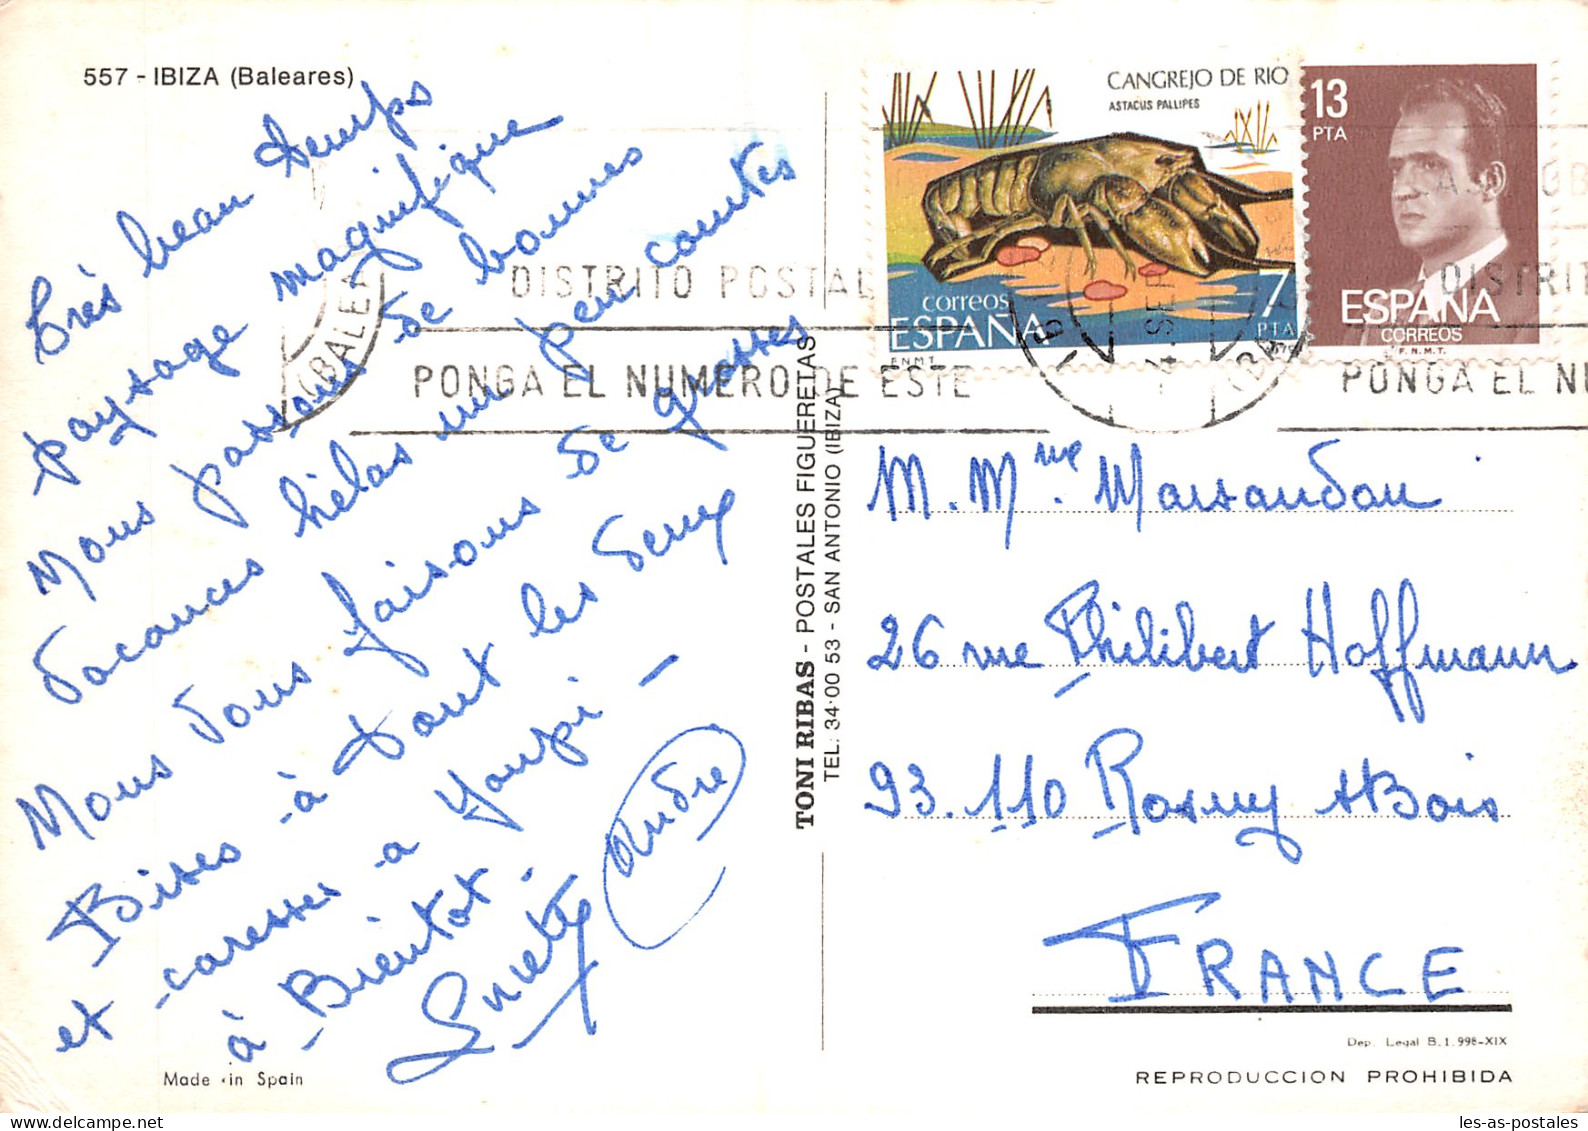 557 - IBIZA (Baleares)
Très beau temps
paysage magnifique
Nous passons de bonnes
vacances hélas un peu courtes
Nous vous faisons de grosses
Bises à tout les deux
et caresses a Youpi -
à Bientot.
André
TONI RIBAS - POSTALES FIGUERETAS
TEL. 34·00 53 - SAN ANTONIO (IBIZA)
Made in Spain
CANGREJO DE RIO
ASTACUS PALLIPES
correos
ESPAÑA
7
PTA
F.N.M.T.
13
PTA
ESPAÑA
CORREOS
F.N.M.T.
DISTRITO POSTAL
PONGA EL NUMERO DE ESTE
(BALEA
SEP
DISTRIT
PONGA EL NU
M. Mme Marsaudou
26 rue Philibert Hoffmann
93.110 Rosny s/Bois
FRANCE
Dep. Legal B.1.998-XIX
REPRODUCCION PROHIBIDA
les-as-postales